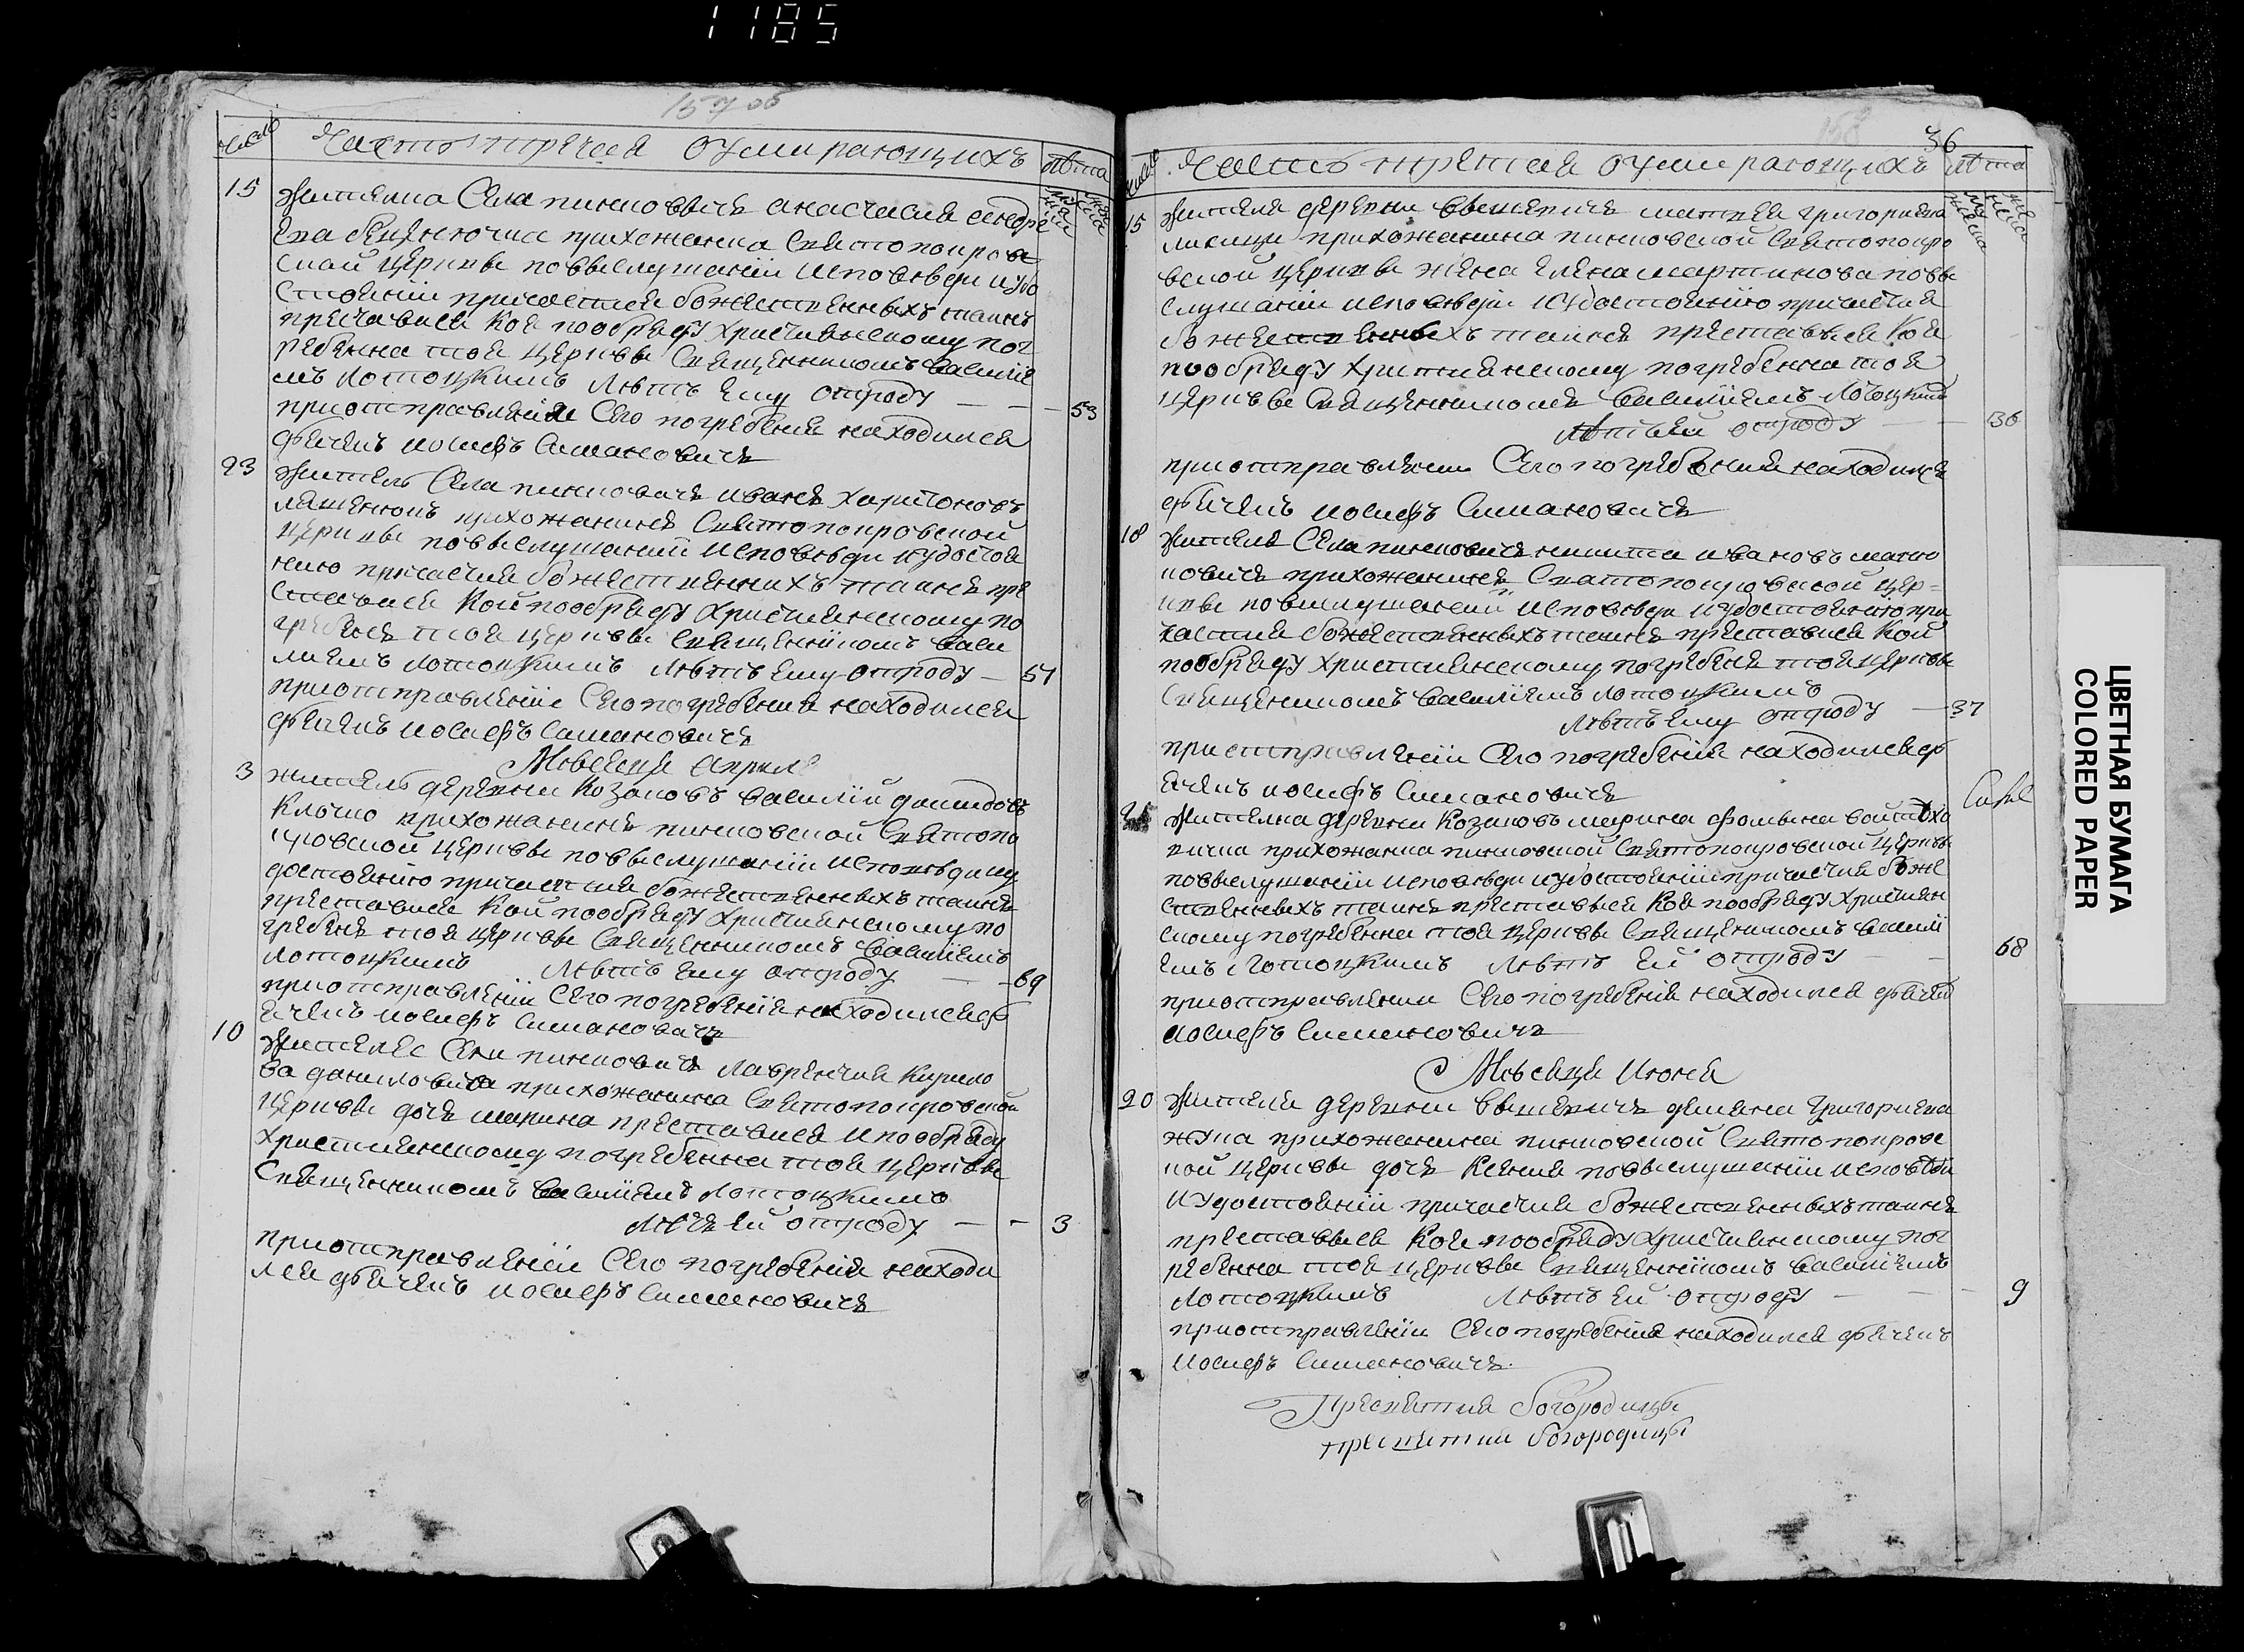 1185
15706
число
Часть третея о умирающихъ
лѣта
15
жителка Села пинковичъ анастасия андре
ева прихожанка Святопокров
Ской церкви по выслушаніи исповѣди и удо
стоеніи причастия божественныхъ таинъ
преставися коя по обряду христианскому пог
ребенна тоя церкви Священникомъ Василие
мъ Лотоцкимъ Лѣтъ ему отроду
53
при отправленіи Сего погребения находился
дьячекъ иосифъ Симановичъ
23
житель Села пинковичъ иванъ харитоновъ
прихожанинъ Святопокровской
церкви по выслушаніи исповѣди и удостое
нию причастия божественнихъ таинъ пре
ставися кой по обряду христианскому по
гребенъ тоя церкви Священникомъ Васи
лиемъ Лотоцкимъ Лѣтъ ему отроду
57
при отправленіи Сего погребения находился
дьячекъ иосифъ Симановичъ
Мѣсяца априля
3
житель деревни Козаковъ василий
Клочко прихожанинъ пинковской Святопо
кровской церкви по выслушаніи исповѣди и у
достоенію причастия божественныхъ таинъ
преставися кой по обряду христианскому по
гребенъ тоя церкви Священникомъ Василиемъ
Лотоцкимъ Лѣтъ ему отроду
69
при отправленіи Сего погребения находился дь
ячекъ иосифъ Симановичъ
10
жителя Села пинковичъ Лаврентия Кирило
ва даниловича прихожанина Святопокровской
церкви дочь марина преставися и по обряду
христианскому погребенна тоя церкви
Священникомъ Василиемъ Лотоцкимъ
лѣтъ ей отроду
3
при отправленіи Сего погребения находи
лся дьячекъ иосифъ Симановичъ
158
36
число
Часть третея о умирающихъ
лѣта
15
жителя деревни Вышевичъ матвея григориева
лисицы прихожанина пинковской Святопокро
вской церкви жена Елена мартинова по вы
слушаніи исповѣди и удостоению причастия
божественныхъ таинъ преставися коя
по обряду христианскому погребенна тоя
церкви Священникомъ Василиемъ Лотоцкимъ
лѣтъ ей отроду
36
при отправлении Сего погребения находился
дьячекъ иосифъ Симановичъ
18
жителя Села пинковичъ никита ивановъ
прихожанинъ Святопокровской цер=
кви по выслушаніи исповѣди и удостоению при
частия божественныхъ таинъ преставися кой
по обряду христианскому погребенъ тоя церкви
Священникомъ Василиемъ Лотоцкимъ
лѣтъ ему отроду
37
при отправленіи Сего погребения находился дь
ячекъ иосифъ Симановичъ
жителка деревни Козаковъ марина фомина
прихожанка пинковской Святопокровской церкви
по выслушаніи исповѣди и удостоеніи причастия боже
ственныхъ таинъ преставися коя по обряду христиан
скому погребенна тоя церкви Священникомъ Васили
емъ Лотоцкимъ лѣтъ ей отроду
68
при отправлении Сего погребения находился дьячекъ
иосифъ Симановичъ
Мѣсяца Июня
20
жителя деревни Вышевичъ демяна григориева
жука прихожанина пинковской Святопокровс
кой церкви дочь Ксения по выслушаніи исповѣди
и удостоеніи причастия божественныхъ таинъ
преставися коя по обряду христианскому пог
ребенна тоя церкви Священникомъ Василиемъ
Лотоцкимъ лѣтъ ей отроду
9
при отправленіи Сего погребения находился дьячекъ
иосифъ Симановичъ
Пресвятия богородицы
пресвятия богородицы
ЦВЕТНАЯ БУМАГА
COLORED PAPER